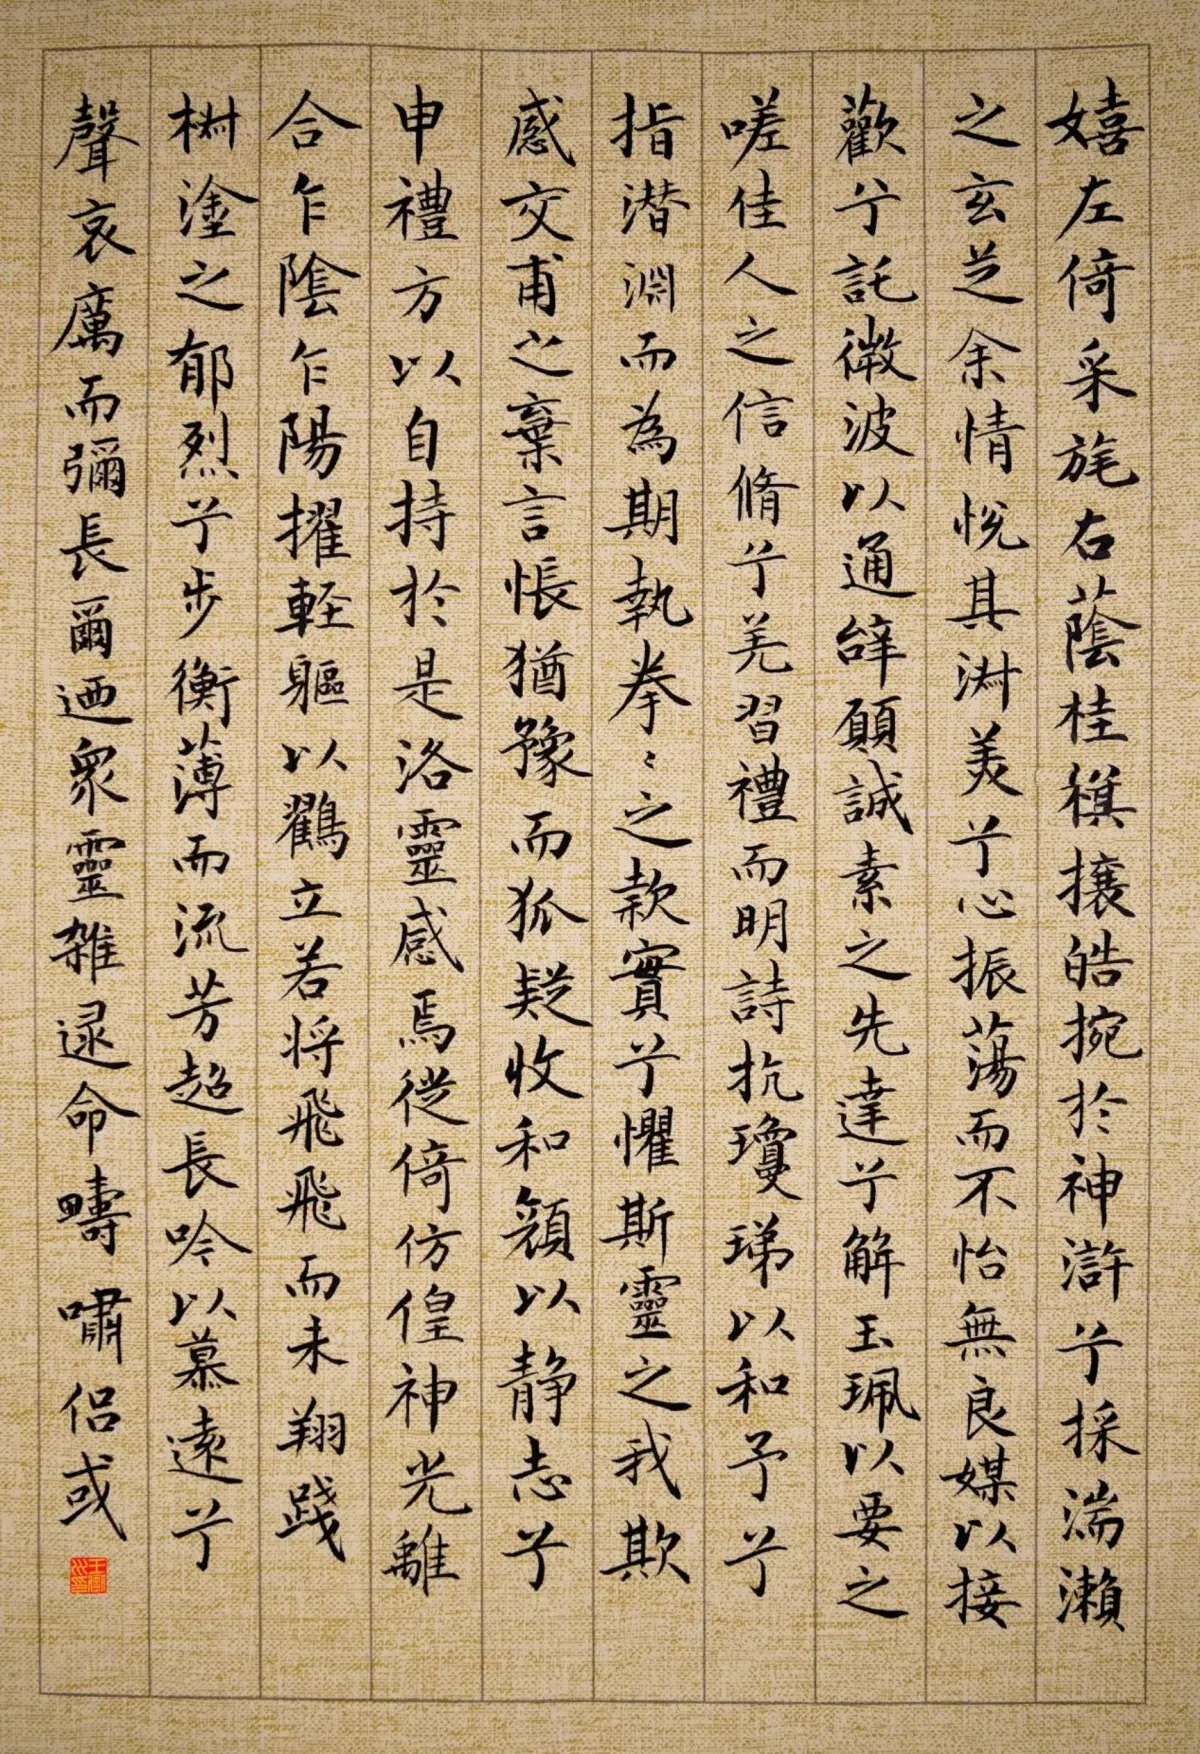 嬉左倚采旄右蔭桂旗攘皓捥於神滸兮採湍瀨
之玄芝余情悅其淑美兮心振蕩而不怡無良媒以接
歡兮託微波以通辭願誠素之先達兮解玉珮以要之
嗟佳人之信脩兮羌習禮而明詩抗瓊珶以和予兮
指潛淵而為期執拳〻之款實兮懼斯靈之我欺
感交甫之棄言悵猶豫而狐疑收和顏以静志兮
申禮方以自持於是洛靈感焉徙倚仿偟神光離
合乍陰乍陽擢輕軀以鶴立若将飛飛而未翔踐
椒塗之郁烈兮步衡薄而流芳超長吟以慕遠兮
聲哀厲而彌長爾迺衆靈雜遝命疇嘯侣或